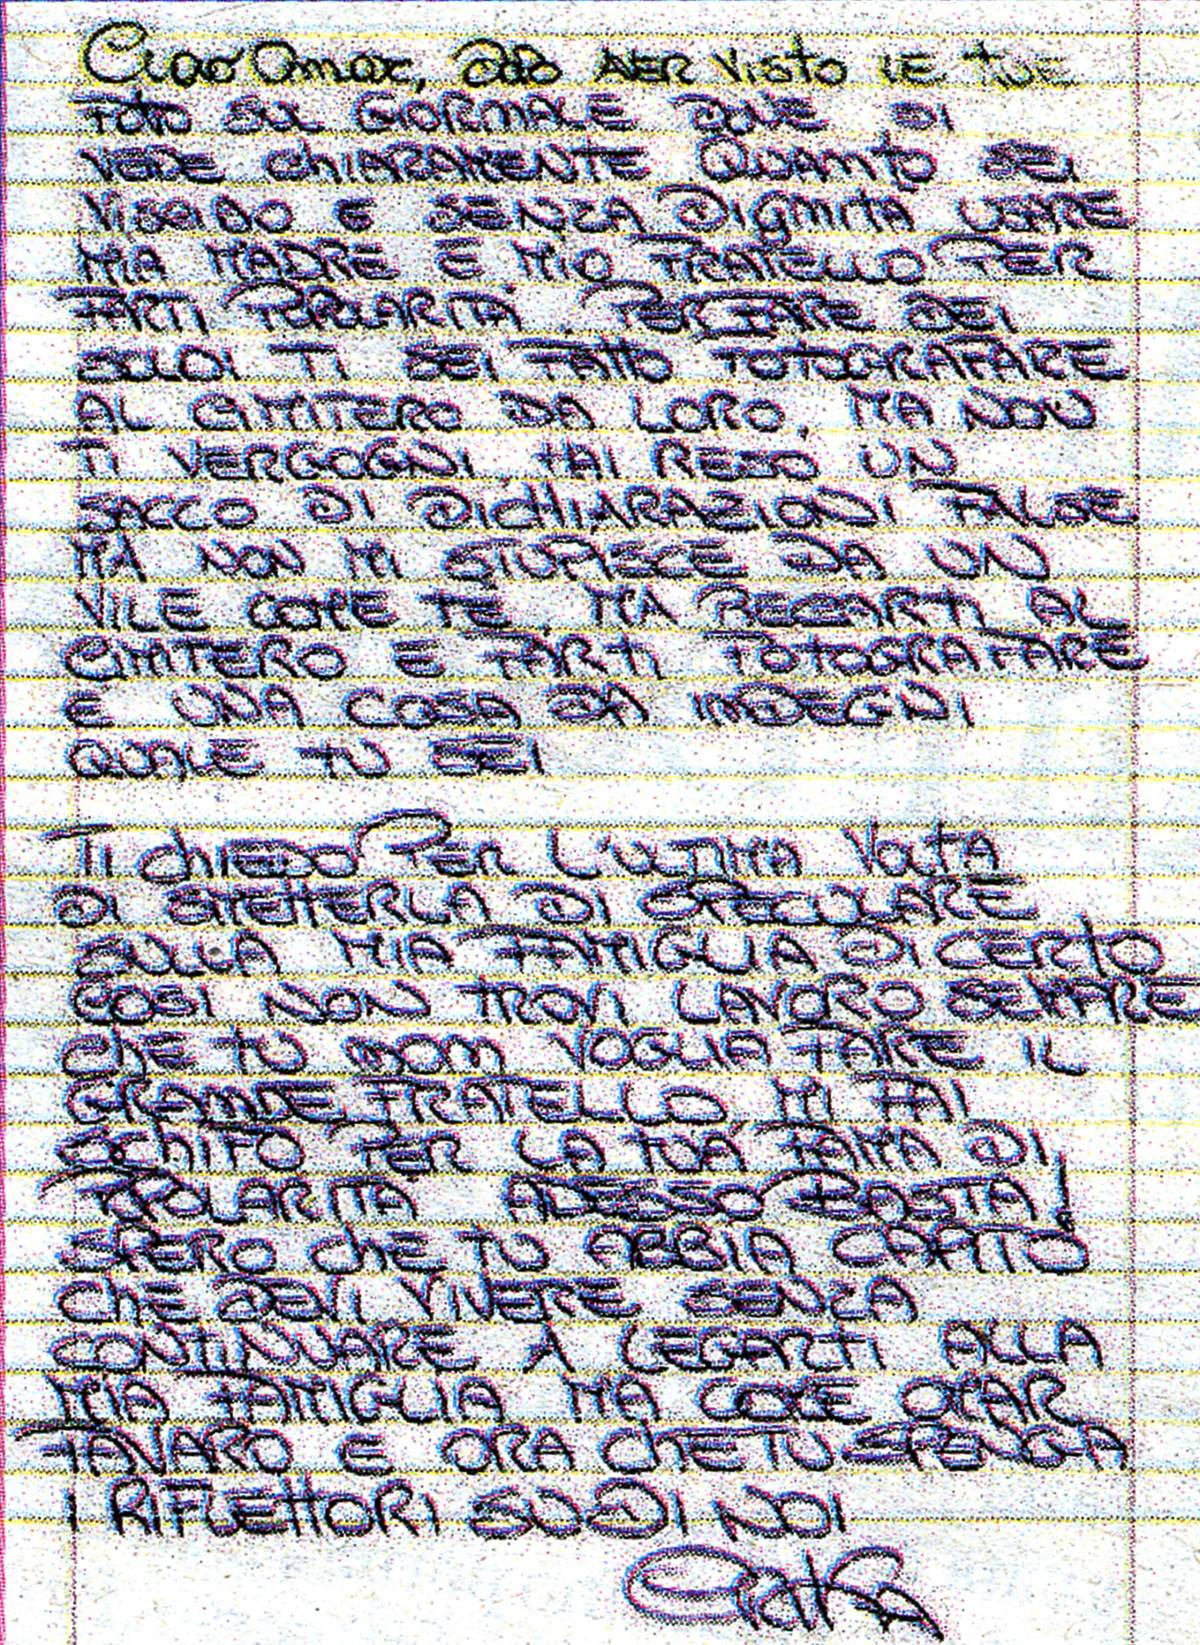 Ciao Omar, dopo AVER Visto LE tUE
FOTO SUL GIORNALE DOVE SI
VEDE ChIARAMENTE QUANTO SEI
VISCIDO E SENZA DIGNITÀ USARE
MIA MADRE E MIO FRATELLO PER
FARTI POPOLARITÀ. PER FARE DEI
SOLDI TI SEI FATTO FOTOGRAFARE
AL CIMITERO DA LORO, MA NON
TI VERGOGNI, HAI RESO UN
SACCO DI DICHIARAZIONI FALSE
MA NON MI STUPISCE DA UN
VILE COME TE, MA RECARTI AL
CIMITERO E FARTI FOTOGRAFARE
E UNA COSA DA INDEGNI
QUALE TU SEI
TI ChIEDO PER L'ULTIMA VOLTA
DI SMETTERLA DI SPECULARE
SULLA MIA FAMIGLIA DI CERTO
COSI NON TROVI LAVORO SEMPRE
ChE TU NON VOGLIA FARE IL
GRANDE FRATELLO. MI FAI
SCHIFO PER LA TUA FAMA DI
POPOLARITÀ ADESSO BASTA!
SPERO ChE TU ABBIA CAPITO
ChE DEVI VIVERE SENZA
CONTINUARE A LEGARTI ALLA
MIA FAMIGLIA MA COME OMAR
FAVARO E ORA ChE TU SPENGA
I RIFLETTORI SU DI NOI
Erika